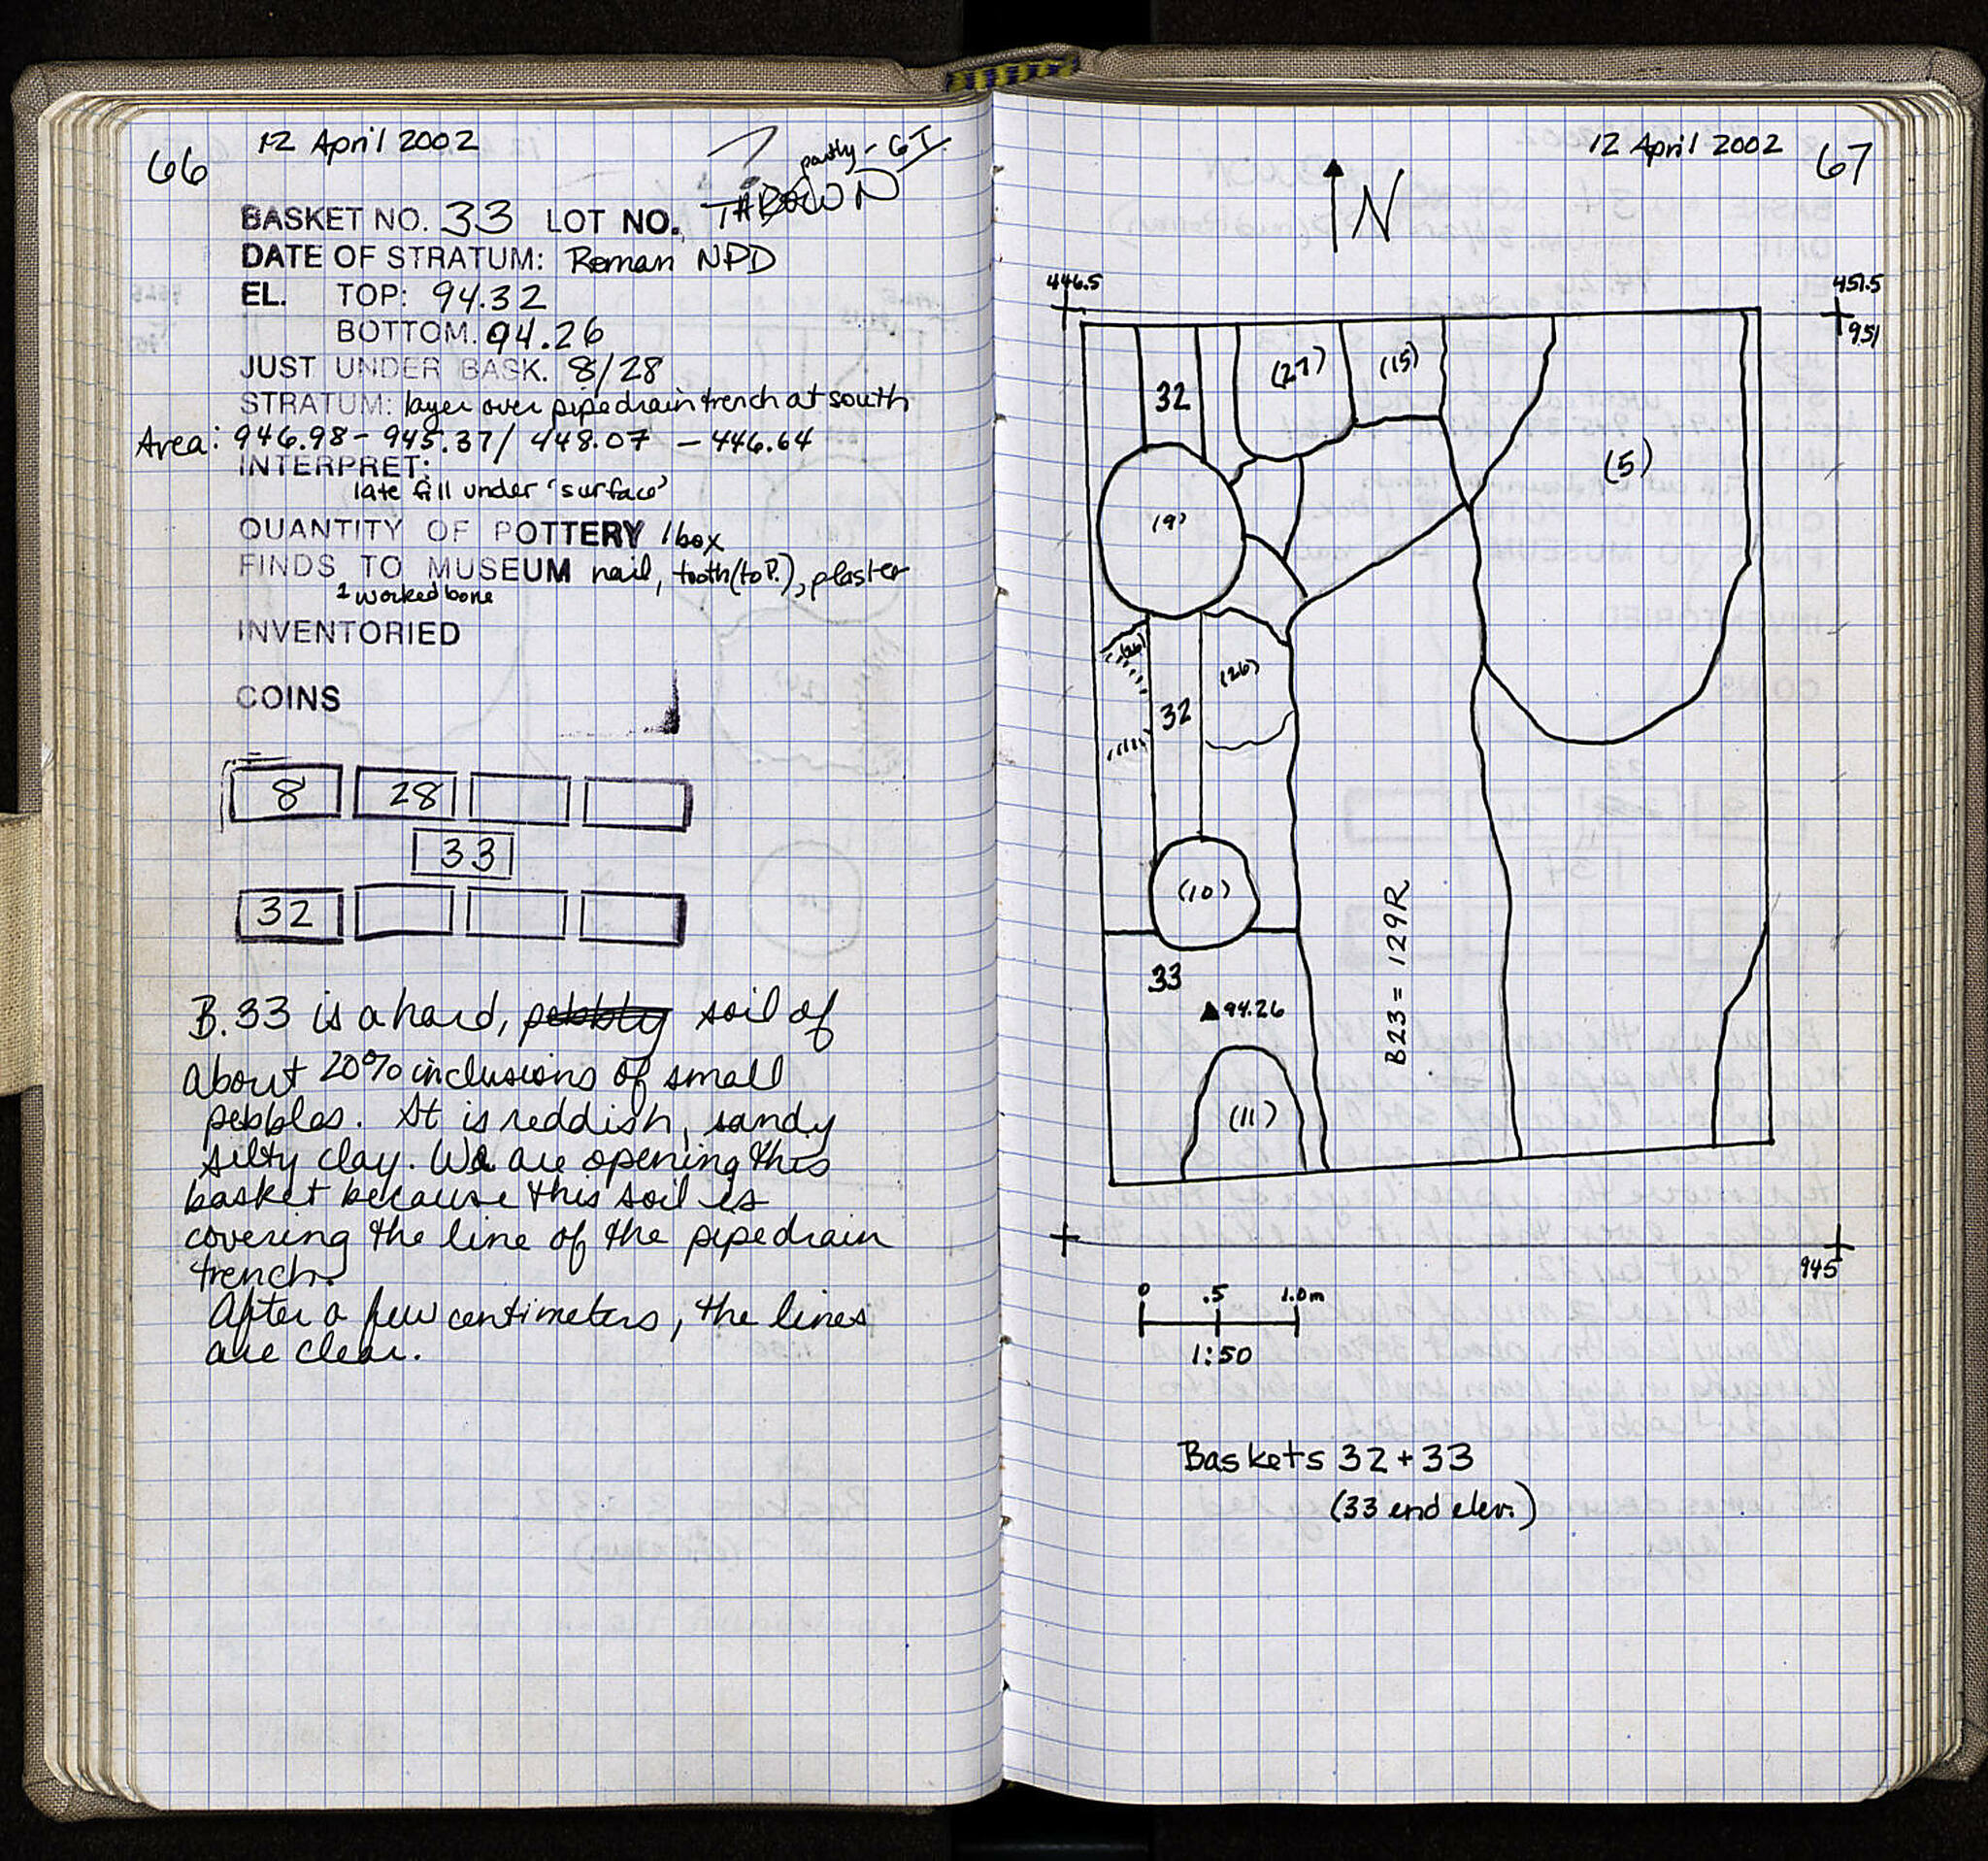 66
12 April 2002
partly - GI
BASKET NO. 33 LOT NO.
DATE OF STRATUM: Roman NPD
EL. TOP: 94.32
BOTTOM. 94.26
JUST UNDER BASK. 8/28
STRATUM: layer over pipedrain trench at south
Area: 946.98 - 945.37 / 448.07 - 446.64
INTERPRET:
late fill under 'surface'
QUANTITY OF POTTERY 1 box
FINDS TO MUSEUM nail, tooth (to P.), plaster
1 worked bone
INVENTORIED
COINS
8 28
33
32
B.33 is a hard, pebbly soil of
about 20% inclusions of small
pebbles. It is reddish, sandy
silty clay. We are opening this
basket because this soil is
covering the line of the pipedrain
trench.
After a few centimeters, the lines
are clear.
12 April 2002
67
N
446.5
451.5
951
32
(27)
(15)
(5)
(9)
(26)
(26)
32
(10)
33
94.26
B23 = 129R
(11)
945
0 .5 1.0m
1:50
Baskets 32 + 33
(33 end elev.)